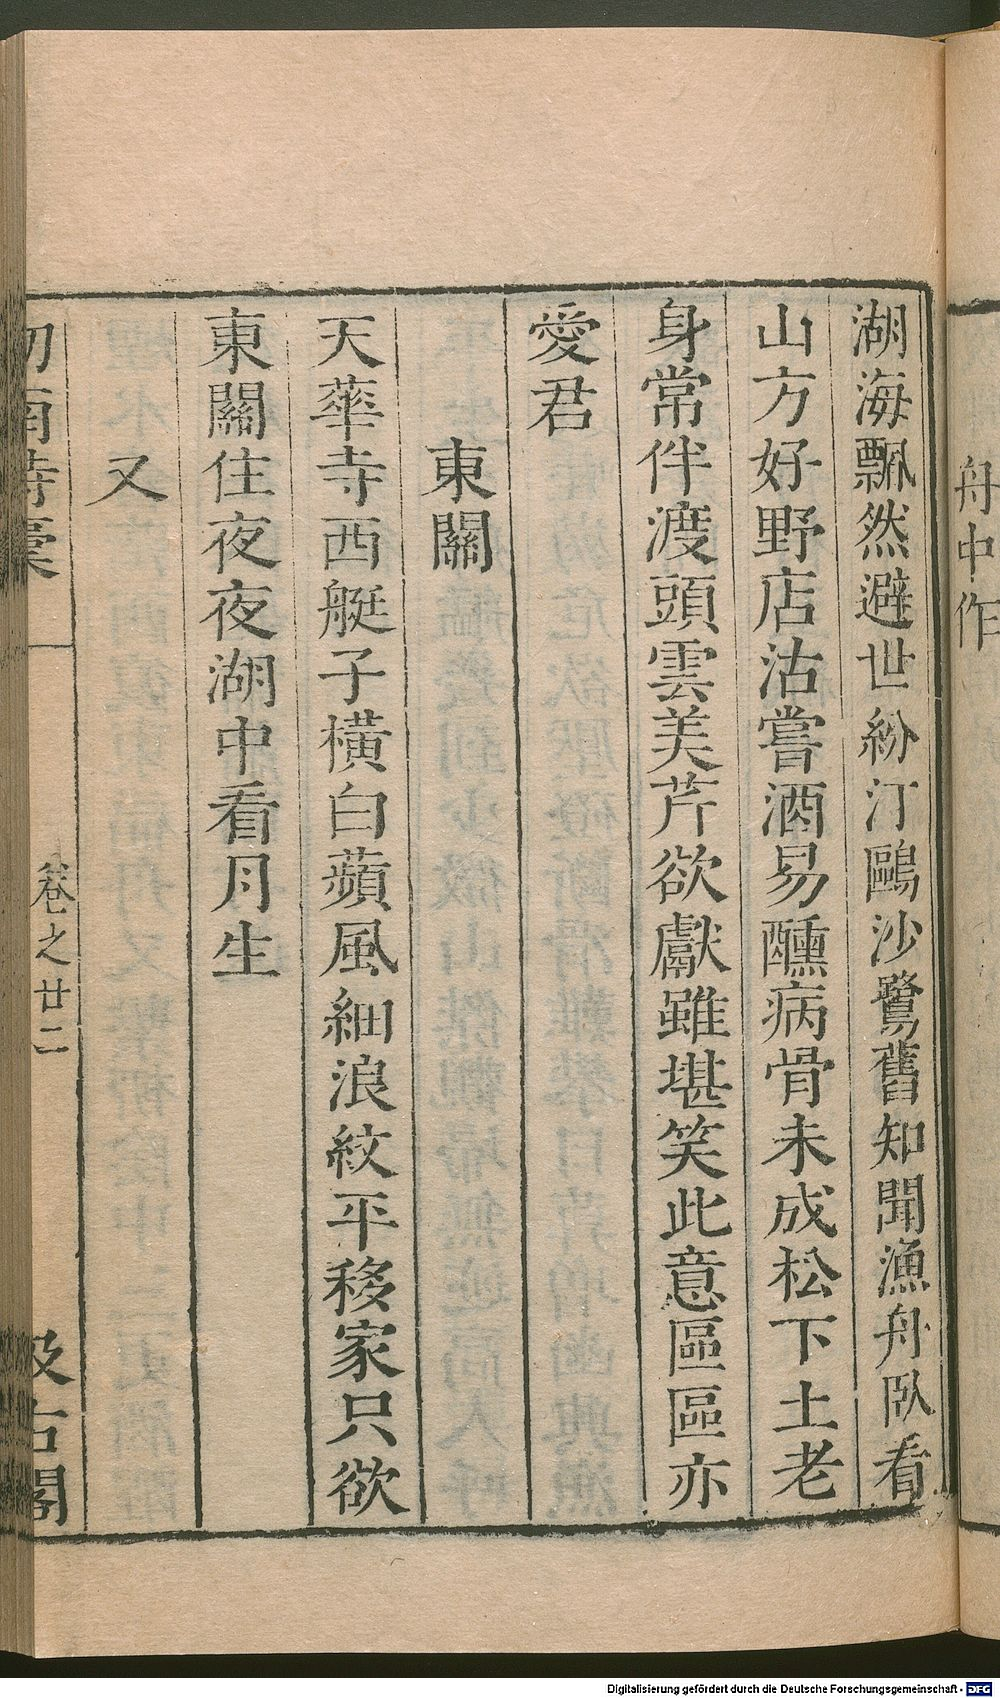 舟中作
湖海飄然避世紛汀鷗沙鷺舊知聞漁舟臥看
山方好野店沽嘗酒易醺病骨未成松下土老
身常伴渡頭雲美芹欲獻雖堪笑此意區區亦
愛君
東關
天華寺西艇子橫白蘋風細浪紋平移家只欲
東關住夜夜湖中看月生
又
劒南詩稾
卷之廿二
汲古閣
Digitalisierung gefördert durch die Deutsche Forschungsgemeinschaft - DFG